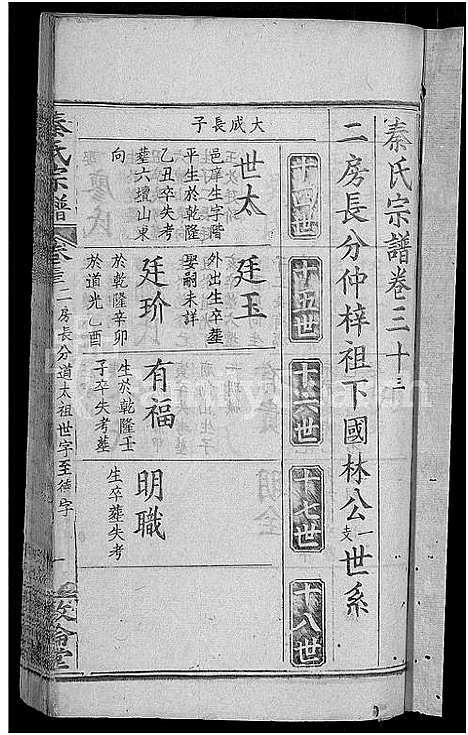 秦氏宗譜卷三十三
二房長分仲梓祖下國林公一支世系
十四世
十五世
十六世
十七世
十八世
大成長子
世太
邑庠生字階
平生於乾隆
乙丑卒失考
塟六壇山東
向
廷玉
外出生卒塟
娶嗣未詳
廷玠
於乾隆辛卯
於道光乙酉
有福
生於乾隆壬
子卒失考塟
明職
生卒塟失考
秦氏宗譜
卷三三
二房長分道太祖世字至德字
一
敦倫堂